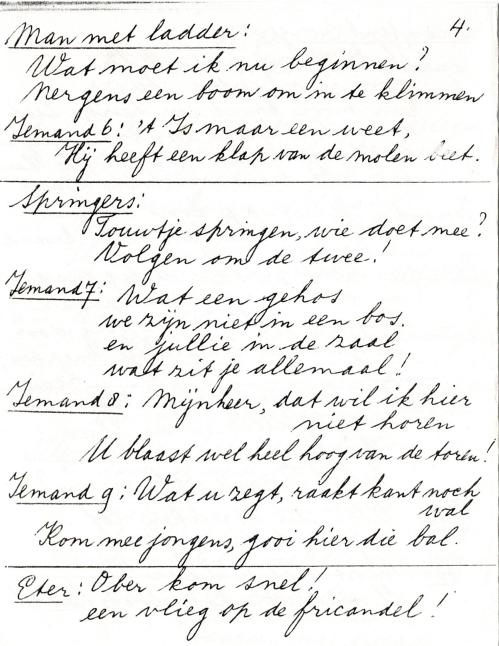 Man met ladder: 4.
Wat moet ik nu beginnen?
Nergens een boom om in te klimmen
Iemand 6: 't Is maar een weet,
Hij heeft een klap van de molen beet.
Springers:
Touwtje springen, wie doet mee?
Volgen om de twee!
Iemand 7: Wat een gehos
we zijn niet in een bos.
en jullie in de zaal
wat zit je allemaal!
Iemand 8: Mijnheer, dat wil ik hier
niet horen
U blaast wel heel hoog van de toren!
Iemand 9: Wat u zegt, raakt kant noch
wal
Kom mee jongens, gooi hier die bal.
Eter: Ober kom snel!
een vlieg op de fricandel!